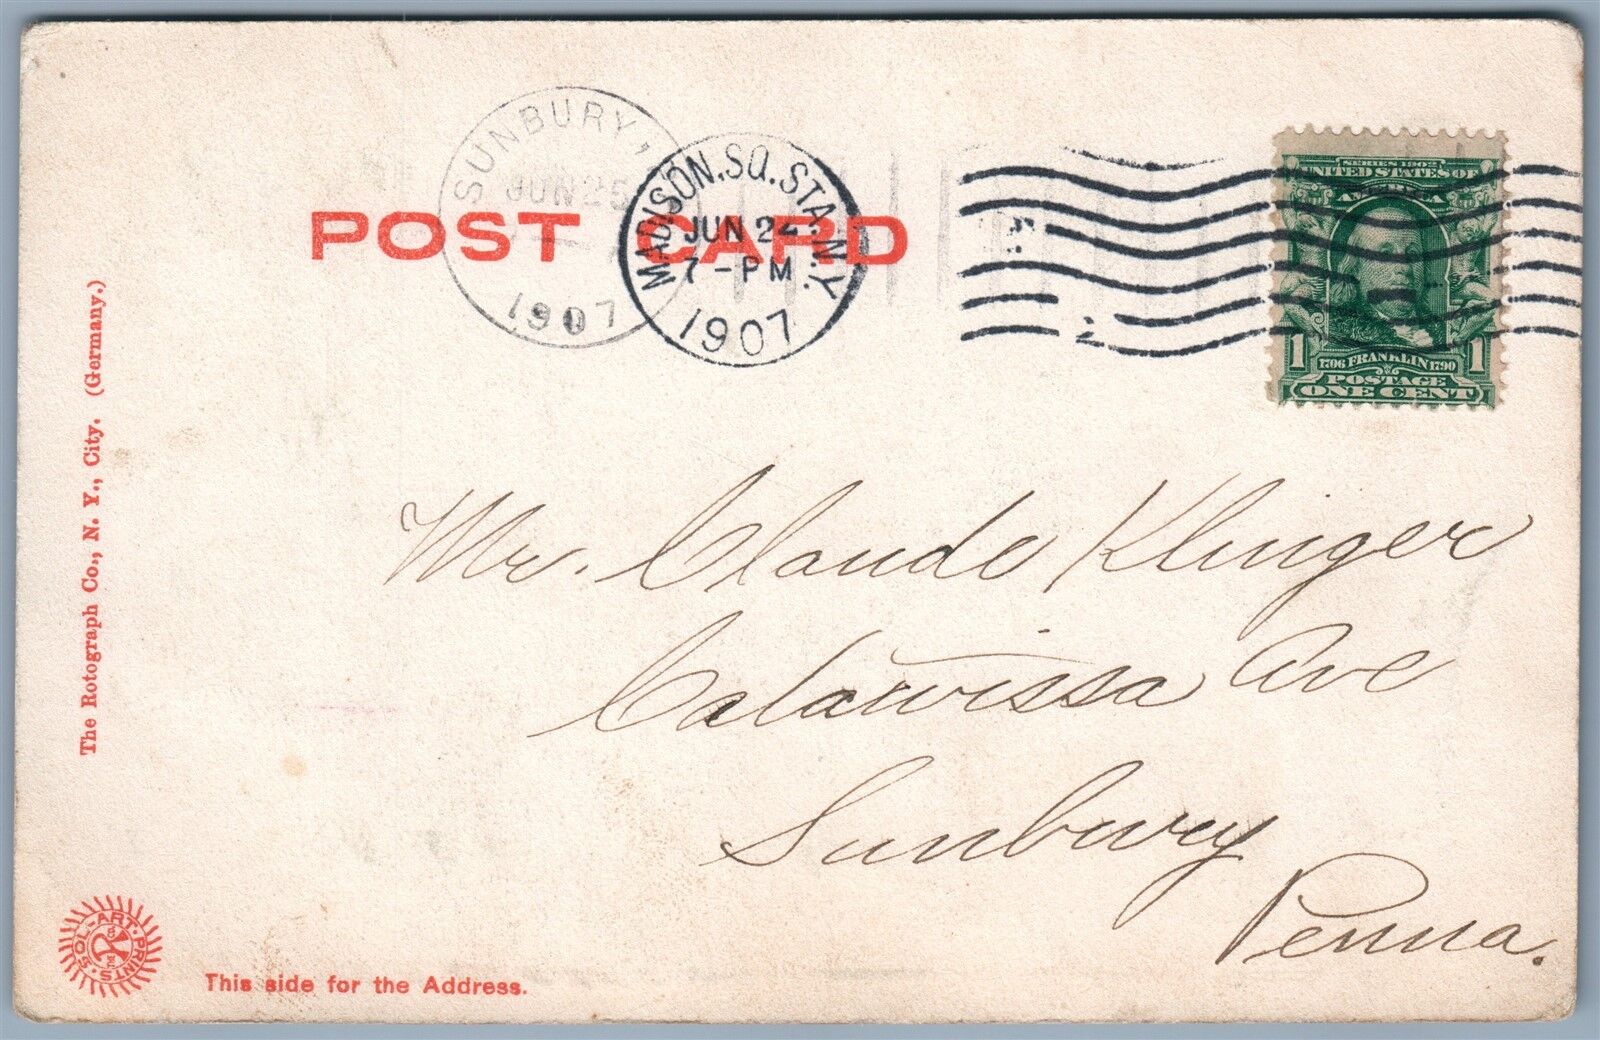 POST CARD
SUNBURY,
JUN 25
1907
MADISON.SQ.STA.N.Y.
JUN 24
7-PM
1907
SERIES 1902
UNITED STATES OF
AMERICA
1 1706 FRANKLIN 1790 1
POSTAGE
ONE CENT
The Rotograph Co., N. Y., City. (Germany.)
Mr. Claude Klinger
Catawissa Ave
Sunbury
Penna.
SOL-ART-PRINTS
This side for the Address.